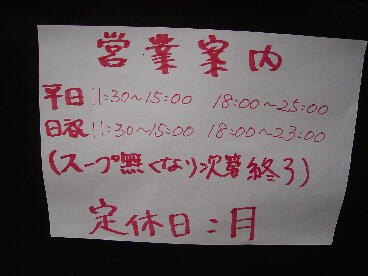 営業案内
平日 11:30~15:00 18:00~25:00
日祝 11:30~15:00 18:00~23:00
(スープ無くなり次第終了)
定休日:月